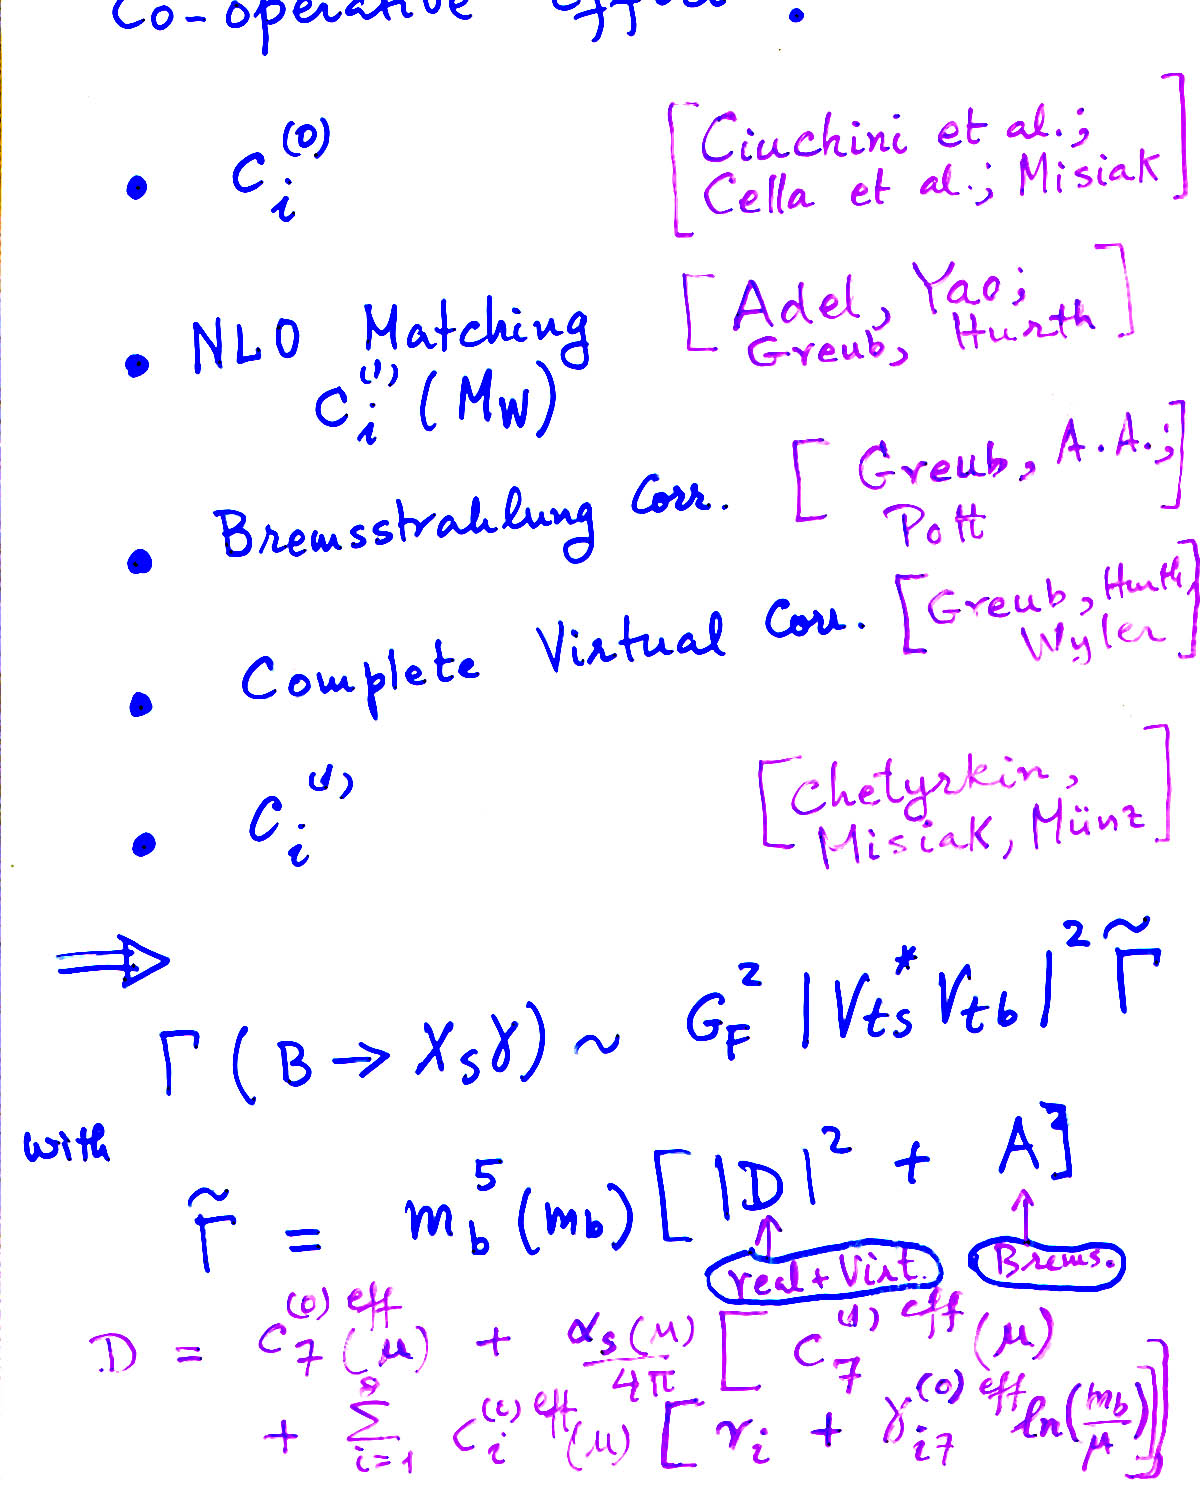 Co-operative effort :
• C_i^(0) [Ciuchini et al.;
Cella et al.; Misiak]
• NLO Matching [Adel, Yao;
C_i^(1) (M_W) Greub, Hurth]
• Bremsstrahlung Corr. [Greub, A.A.;
Pott]
• Complete Virtual Corr. [Greub, Hurth,
Wyler]
• C_i^(1) [Chetyrkin,
Misiak, Münz]
⇒
Γ(B → X_s γ) ~ G_F^2 |V_ts^* V_tb|^2 Γ̃
with
Γ̃ = m_b^5 (m_b) [|D|^2 + A]
real + Virt. Brems.
D = C_7^(0) eff (μ) + α_s(μ)/4π [ C_7^(1) eff (μ)
+ Σ_{i=1}^8 C_i^(0) eff (μ) [ r_i + γ_i7^(0) eff ln(m_b/μ) ] ]